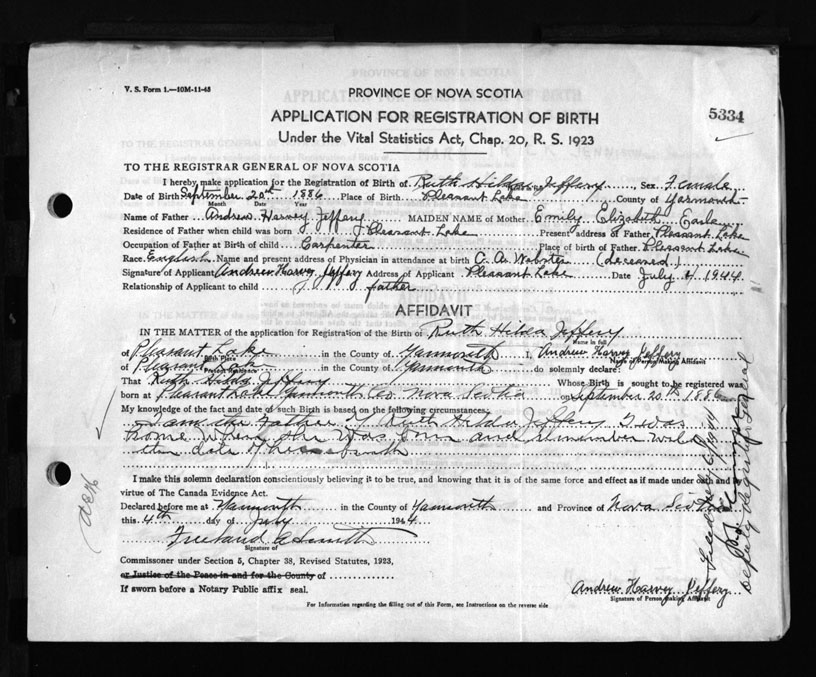 V. S. Form 1.—10M-11-45
PROVINCE OF NOVA SCOTIA
5334
APPLICATION FOR REGISTRATION OF BIRTH
Under the Vital Statistics Act, Chap. 20, R. S. 1923
TO THE REGISTRAR GENERAL OF NOVA SCOTIA
I hereby make application for the Registration of Birth of Ruth Hilda Jeffery Sex Female
Date of Birth September 20th 1886 Place of Birth Pleasant Lake County of Yarmouth
Month Date Year
Name of Father Andrew Harvey Jeffery MAIDEN NAME of Mother Emily Elizabeth Earle
Residence of Father when child was born Pleasant Lake Present address of Father Pleasant Lake
Occupation of Father at Birth of child Carpenter Place of birth of Father Pleasant Lake
Race English Name and present address of Physician in attendance at birth C. A. Webster (deceased)
Signature of Applicant Andrew Harvey Jeffery Address of Applicant Pleasant Lake Date July 4 1944
Relationship of Applicant to child father
AFFIDAVIT
IN THE MATTER of the application for Registration of the Birth of Ruth Hilda Jeffery
Name in full
of Pleasant Lake in the County of Yarmouth I, Andrew Harvey Jeffery
Birth Place Name of Person Making Affidavit
of Pleasant Lake in the County of Yarmouth do solemnly declare:
Present Residence
That Ruth Hilda Jeffery Whose Birth is sought to be registered was
born at Pleasant Lake Yarmouth Co. Nova Scotia on September 20th 1886
My knowledge of the fact and date of such Birth is based on the following circumstances:
I am the Father of Ruth Hilda Jeffery I was
home when she was born and remember well
the date of her birth
I make this solemn declaration conscientiously believing it to be true, and knowing that it is of the same force and effect as if made under oath and by
virtue of The Canada Evidence Act.
Declared before me at Yarmouth in the County of Yarmouth and Province of Nova Scotia
this 4th day of July 1944
Freeland A Smith
Signature of
Commissioner under Section 5, Chapter 38, Revised Statutes, 1923,
or Justice of the Peace in and for the County of
If sworn before a Notary Public affix seal.
Andrew Harvey Jeffery
Signature of Person Making Affidavit
For Information regarding the filling out of this Form, see Instructions on the reverse side
Deputy Registrar General